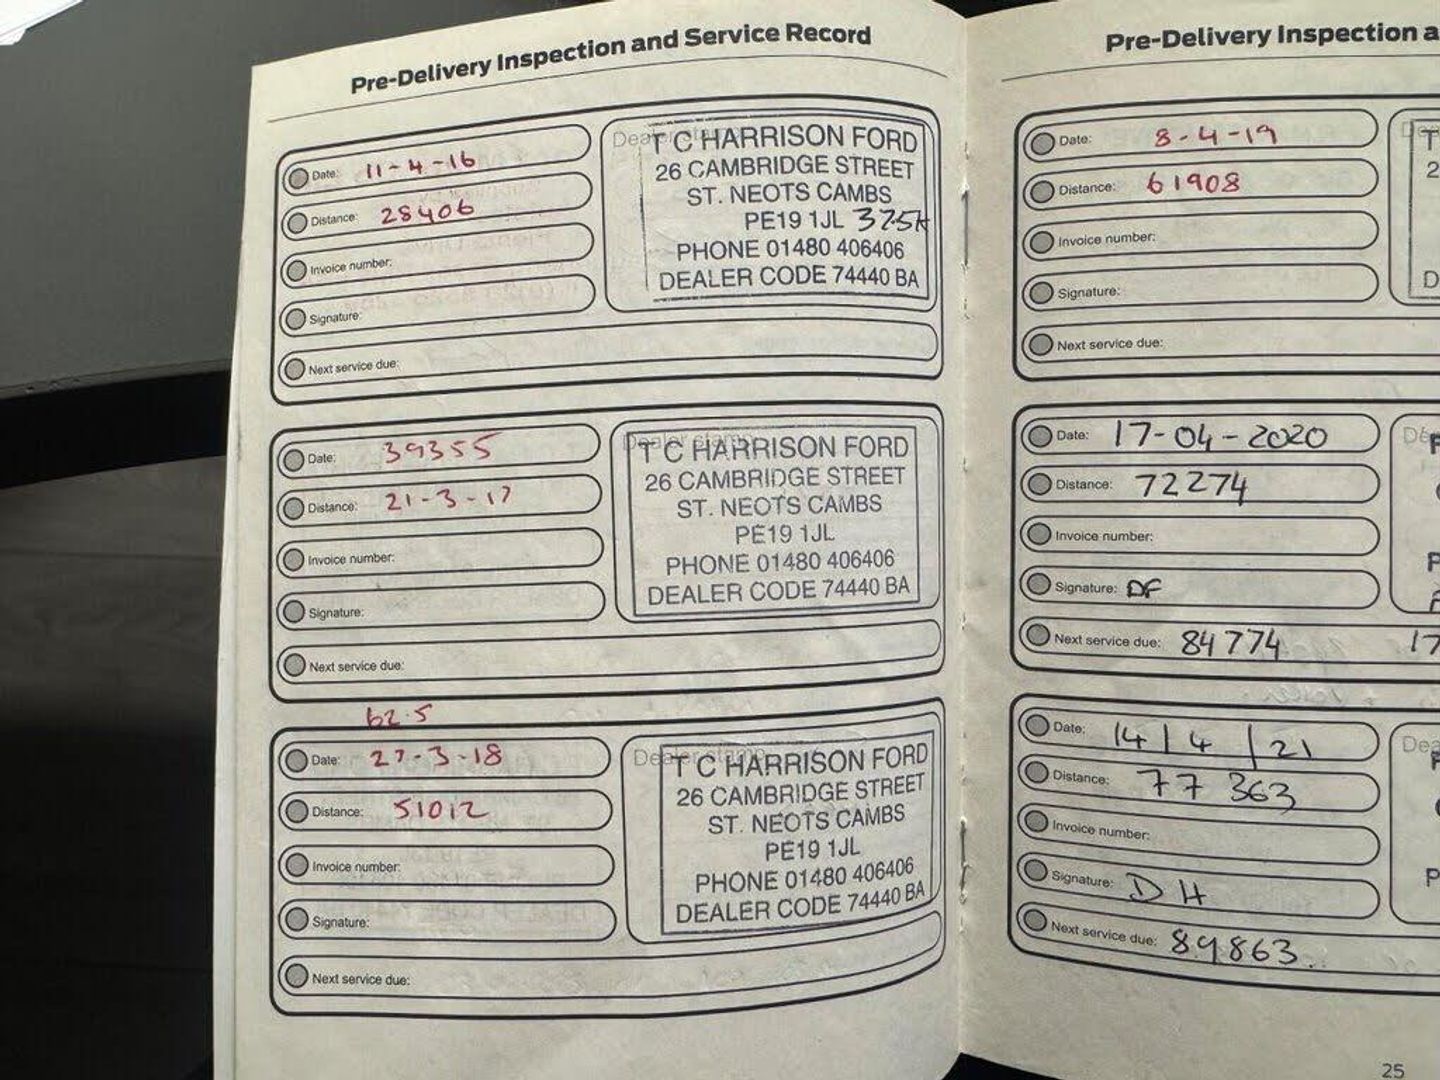 Pre-Delivery Inspection and Service Record
Date: 11-4-16
Distance: 28406
Invoice number:
Signature:
Next service due:
Dealer stamp
T C HARRISON FORD
26 CAMBRIDGE STREET
ST. NEOTS CAMBS
PE19 1JL 37.5K
PHONE 01480 406406
DEALER CODE 74440 BA
Date: 39355
Distance: 21-3-17
Invoice number:
Signature:
Next service due:
Dealer stamp
T C HARRISON FORD
26 CAMBRIDGE STREET
ST. NEOTS CAMBS
PE19 1JL
PHONE 01480 406406
DEALER CODE 74440 BA
62.5
Date: 27-3-18
Distance: 51012
Invoice number:
Signature:
Next service due:
Dealer stamp
T C HARRISON FORD
26 CAMBRIDGE STREET
ST. NEOTS CAMBS
PE19 1JL
PHONE 01480 406406
DEALER CODE 74440 BA
Pre-Delivery Inspection a
Date: 8-4-19
Distance: 61908
Invoice number:
Signature:
Next service due:
T
2
D
Date: 17-04-2020
Distance: 72274
Invoice number:
Signature: DF
Next service due: 84774 17
Date: 14/4/21
Distance: 77363
Invoice number:
Signature: DH
Next service due: 89863.
25